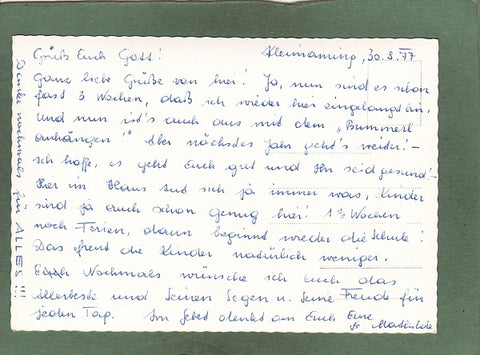 Grüß Euch Gott! Kleinraming, 30.8.77
Ganz liebe Grüße von hier! Ja, nun sind es schon
fast 3 Wochen, daß ich wieder hier eingelangt bin,
und nun ist's auch aus mit dem „Bummerl
anhängen!" Aber nächstes Jahr geht's weiter! -
Ich hoffe, es geht Euch gut und Ihr seid gesund! -
Hier im Haus tut sich ja immer was, Kinder
sind ja auch schon genug hier! 1 ½ Wochen
noch Ferien, dann beginnt wieder die Schule!
Das freut die Kinder natürlich weniger.
Nochmals wünsche ich Euch das
Allerbeste und Seinen Segen u. Seine Freude für
jeden Tag. Im Gebet denkt an Euch Eure
Sr. Mathilde
Danke nochmals für ALLES!!!